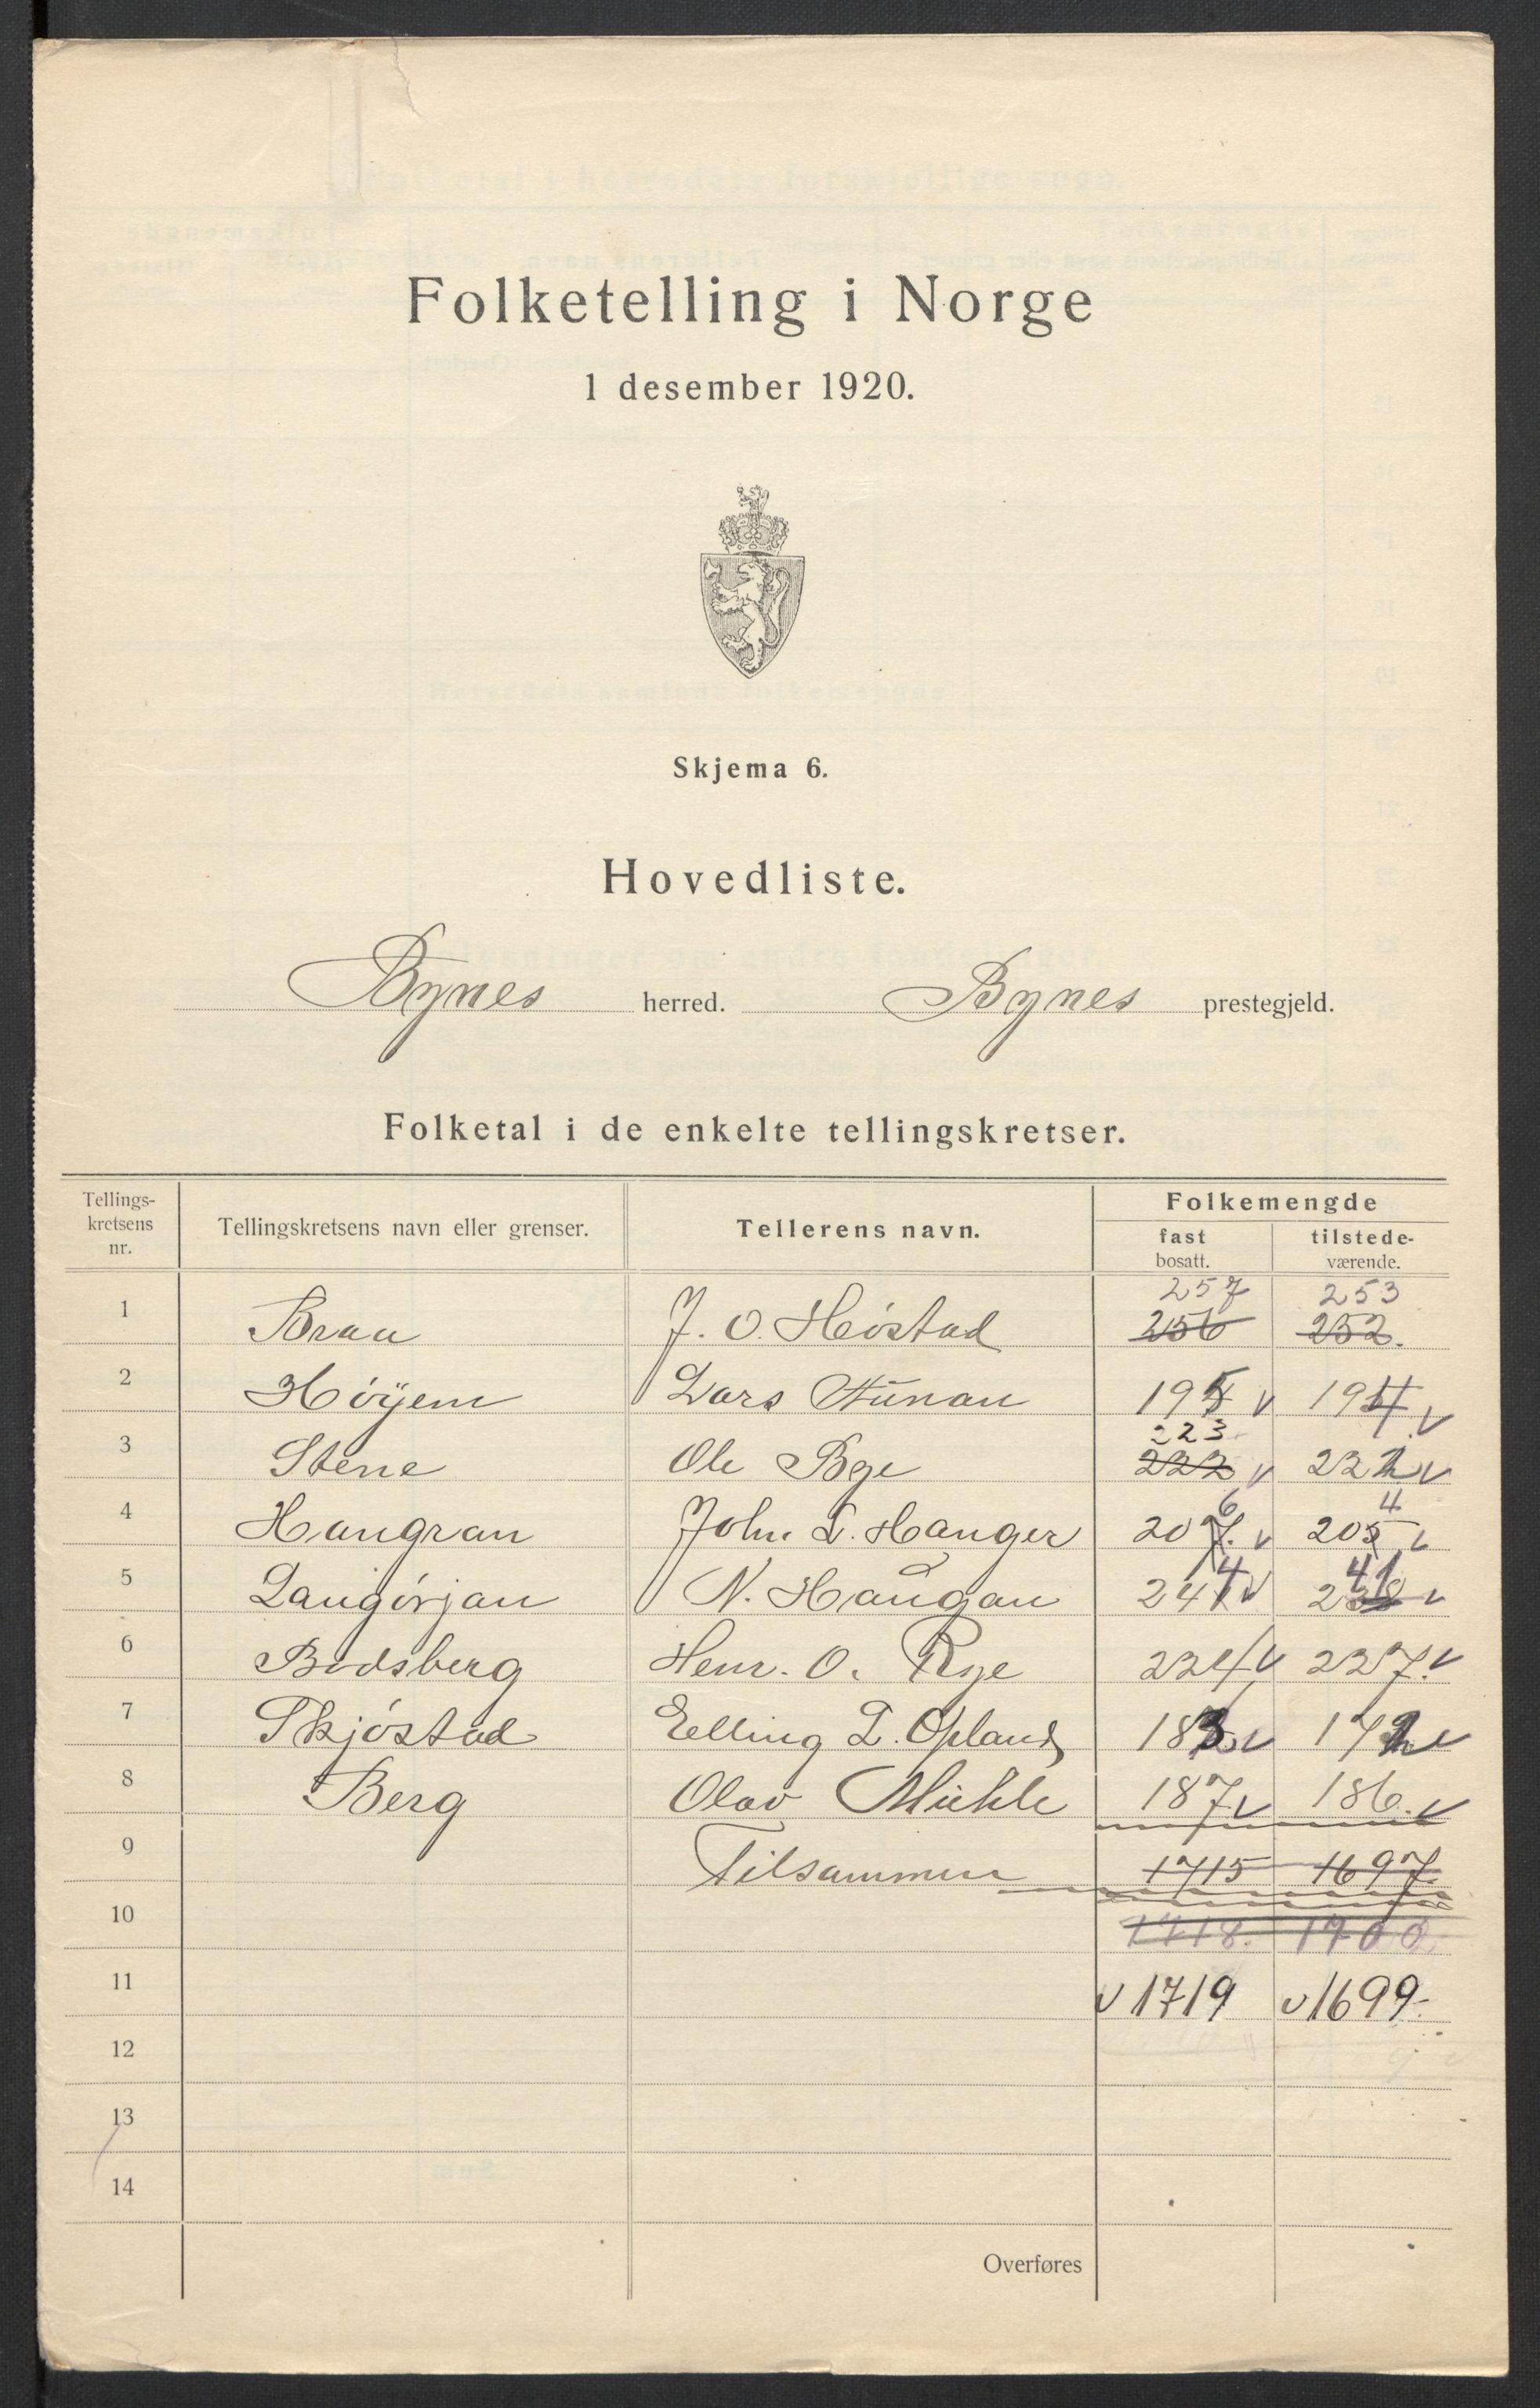 Folketelling i Norge
1 desember 1920.
Skjema 6.
Hovedliste.
Bynes herred. Bynes prestegjeld.
Folketal i de enkelte tellingskretser.
Tellings-kretsens nr. Tellingskretsens navn eller grenser. Tellerens navn. Folkemengde
fast bosatt. tilstede-værende.
257 253
1 Braa J. O. Heistad 256 252.
2 Höijem Lars Hunan 195 v 194 v
223
3 Stene Ole Bye 222 v 222 v
6 4
4 Hangran John L. Hanger 207. v 205 v
4 41
5 Langörjan N. Haugan 241 v 238 v
6 Bodsberg Henr. O. Rye 224 v 227. v
7 Skjöstad Elling L. Opland 183 v 172 v
8 Berg Olav Mühle 187 v 186. v
9 Tilsammen 1715 1697.
10 1718. 1700
11 v 1719 v 1699-
12
13
14
Overføres